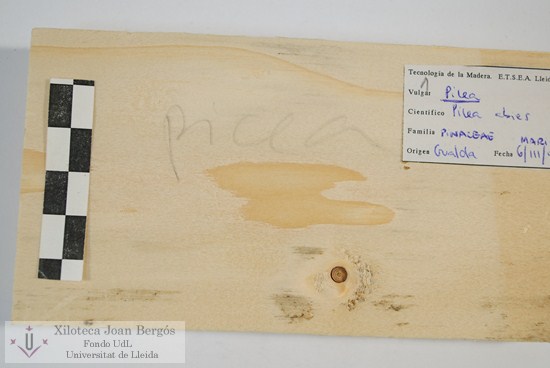 picea
Tecnología de la Madera. E.T.S.E.A. Lleida
Vulgar Picea
Científico Picea abies
Familia PINACEAE MARI
Origen Gualda Fecha 6/III/
Xiloteca Joan Bergós
Fondo UdL
Universitat de Lleida